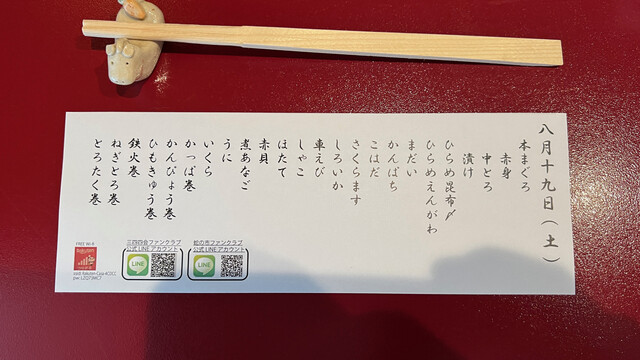 八月十九日（土）
本まぐろ
赤身
中とろ
漬け
ひらめ昆布〆
ひらめえんがわ
まだい
かんぱち
こはだ
さくらます
しろいか
車えび
しゃこ
ほたて
赤貝
煮あなご
うに
いくら
かっぱ巻
かんぴょう巻
ひもきゅう巻
鉄火巻
ねぎとろ巻
とろたく巻
FREE Wi-fi
Rakuten
三四四会ファンクラブ
公式LINEアカウント
LINE
蛇の市ファンクラブ
公式LINEアカウント
LINE